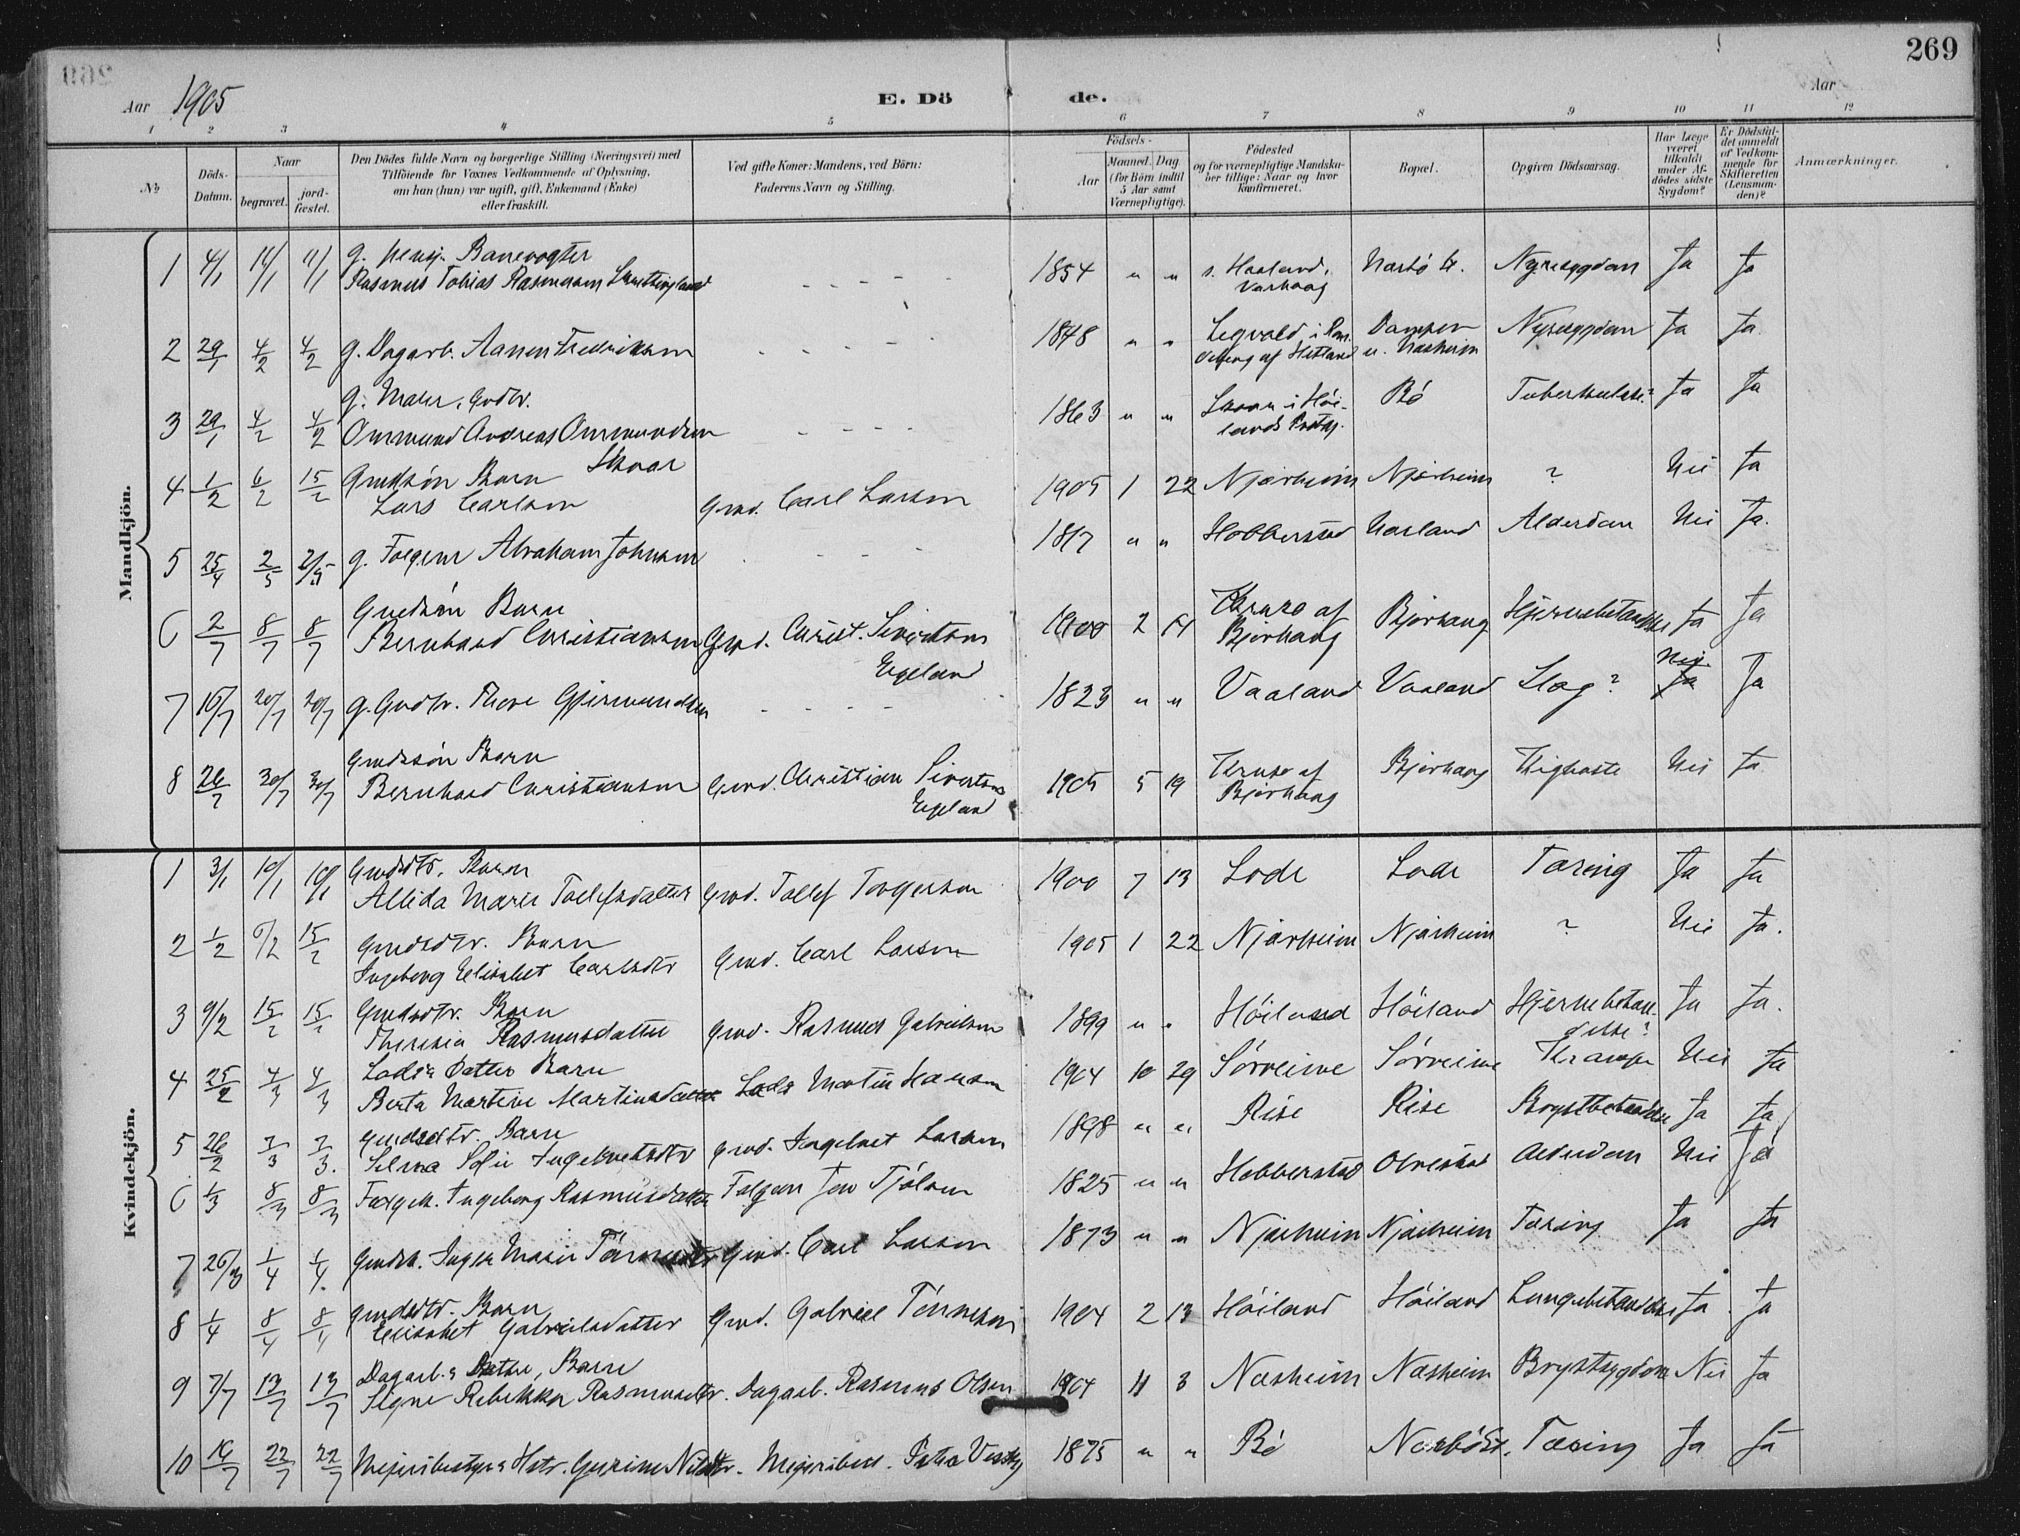 269
Aar 1905 E. Dö de. Aar
1 2 3 4 5 6 7 8 9 10 11 12
No
Döds-Datum.
Naar
begravet.
jord-fæstet.
Den Dödes fulde Navn og borgerlige Stilling (Næringsvei) med
Tilföiende for Voxnes Vedkommende af Oplysning,
om han (hun) var ugift, gift, Enkemand (Enke)
eller fraskilt.
Ved gifte Koner: Mandens, ved Börn:
Faderens Navn og Stilling.
Födsels-
Aar
Maaned. Dag
(for Börn indtil
5 Aar samt
Værnepligtige).
Födested
og for værnepligtige Mandska-
ber tillige: Naar og hvor
konfirmeret.
Bopæl.
Opgiven Dödsaarsag.
Har Læge
været
tilkaldt
under Af-
dödes sidste
Sygdom?
Er Dödsfal-
det anmeldt
af Vedkom-
mende for
Skifteretten
(Lensman-
den)?
Anmærkninger.
Mandkjön.
1 4/1 11/1 11/1 g. pensj. Banevogter
Rasmus Tobias Rasmussen - - - - 1854 " " Varhaug Nærbö St. Nyresygdom Ja Ja
2 29/1 4/2 4/2 g. Dagarb. Aanen Fredriksen - - - - 1848 " " Nyresygdom Ja Ja.
3 29/1 4/2 4/2 g. Maler, Gudbr.
Ommund Andreas Ommundsen
Skaar - - - - 1863 " " Skaar i Höi-
lands Prstgj. Bö Tuberkulose? Ja Ja
4 1/2 6/2 15/2 Gmdssön Barn
Lars Carlsen Gmd. Carl Larsen 1905 1 22 Njærheim Njærheim ? Nei Ja
5 25/4 2/5 2/5 g. Folgem. Abraham Johnsen - - - 1817 " " Hobberstad Alderdom Nei Ja.
6 2/7 8/7 8/7 Gmdssön Barn
Bernhard Christiansen Gmd. Christ. Sivertsen
Egeland 1900 2 Bjorhaug Bjorhaug Hjernebetændelse Ja Ja
7 15/7 20/7 20/7 g. Gmd Thore Gjermundsen - - - - 1823 " " Vaaland Vaaland Slag? Nei Ja
8 26/7 30/7 30/7 Gmdssön Barn
Bernhard Christiansen Gmd. Christian Sivertsen
Egeland 1905 5 19 Bjorhaug Bjorhaug Kighoste Nei Ja
Kvindekjön.
1 3/1 10/1 10/1 Gmdsdtr. Barn
Allida Marie Tollefsdatter Gmd. Tollef Torgersen 1900 7 13 Lode Lode Tæring Ja Ja
2 1/2 6/2 15/2 Gmdsdtr. Barn
Ingeborg Elisabet Carlsdtr Gmd. Carl Larsen 1905 1 22 Njærheim Njærheim ? Nei Ja.
3 9/2 15/2 15/2 Gmdsdtr. Barn
Theresia Rasmusdatter Gmd. Rasmus Gabrielsen 1899 " " Höiland Höiland Hjernebetæn-
delse? Ja Ja.
4 25/2 4/3 4/3 Lods's Datter Barn
Berta Martine Martinsdatter Lods Martin Hansen 1904 10 29 Sörreime Sörreime Krampe Nei Ja
5 26/2 7/3 7/3. Gmdsdtr. Barn
Selma Sofie Ingebretsdtr Gmd. Ingebret Larsen 1898 " " Rise Rise Brystbetændelse Ja Ja
6 1/3 8/3 8/3 Folgek. Ingeborg Rasmusdatter Folgem Jon Tjölsen 1825 " " Hobberstad Alderdom Nei Ja
7 26/3 1/4 1/4. Gmdsk. Inger Marie Gmd. Carl Larsen 1873 " " Njærheim Njærheim Tæring Ja Ja
8 1/4 8/4 8/4 Gmdsdtr. Barn
Elisabet Gabrielsdatter Gmd. Gabriel Tönnesen 1904 2 13 Höiland Höiland Lungebetændelse Ja Ja
9 7/7 13/7 13/7 Dagarb.s Datter, Barn
Signe Rebekka Rasmusdtr. Dagarb. Rasmus Olsen 1904 11 3 Næsheim Næsheim Brystsygdom Nei Ja
10 16/7 22/7 22/7 Meieribestyrers Hstr. Gurine Nilsdtr. Meieribest. 1875 " " Bö Nærbö St. Tæring Ja Ja